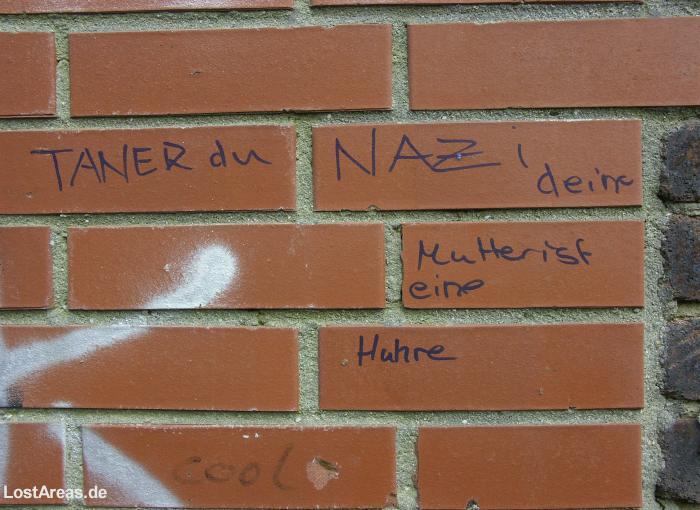 TANER du NAZi deine
Mutter ist
eine
Huhre
cool
LostAreas.de